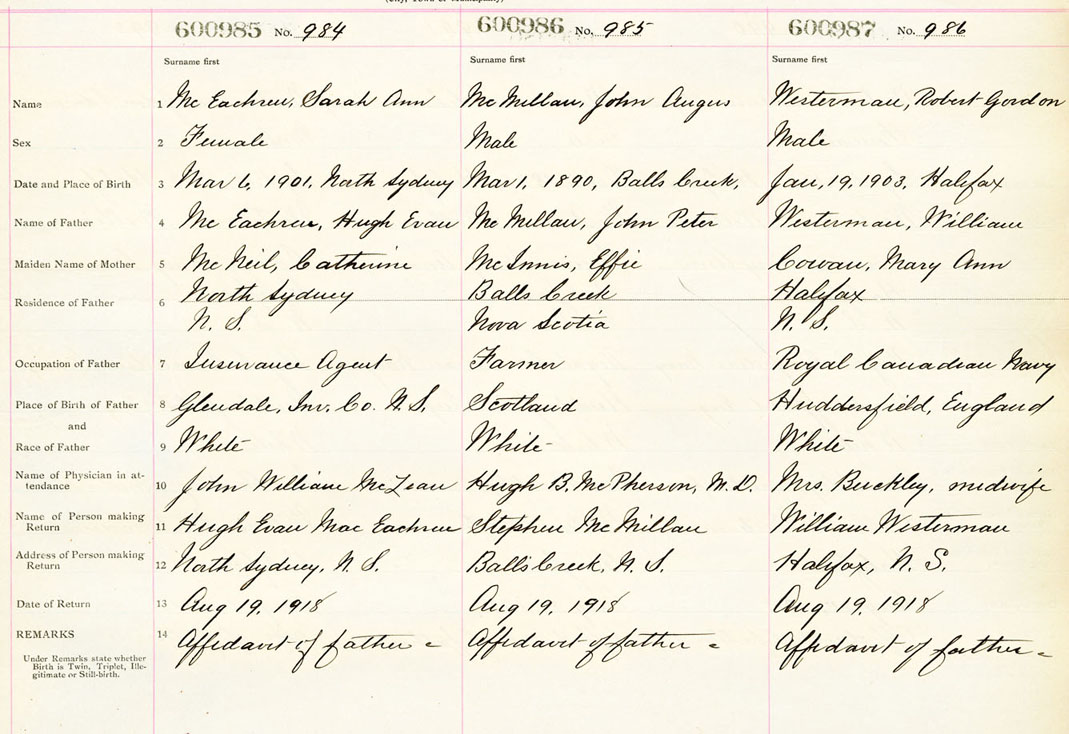 (City, Town or Municipality)
600985 No. 984 600986 No. 985 600987 No. 986
Surname first Surname first Surname first
Name 1 Mc Eachren, Sarah Ann Mc Millan, John Angus Westerman, Robert Gordon
Sex 2 Female Male Male
Date and Place of Birth 3 Mar 6, 1901, North Sydney Mar 1, 1890, Balls Creek, Jan, 19, 1903, Halifax
Name of Father 4 Mc Eachren, Hugh Evan Mc Millan, John Peter Westerman, William
Maiden Name of Mother 5 Mc Neil, Catherine Mc Innis, Effie Cowan, Mary Ann
Residence of Father 6 North Sydney Balls Creek Halifax
N. S. Nova Scotia N. S.
Occupation of Father 7 Insurance Agent Farmer Royal Canadian Navy
Place of Birth of Father 8 Glendale, Inv. Co. N. S. Scotland Huddersfield, England
and
Race of Father 9 White White White
Name of Physician in at-
tendance 10 John William McLean Hugh B. McPherson, M. D. Mrs. Buckley, midwife
Name of Person making
Return 11 Hugh Evan Mac Eachren Stephen Mc Millan William Westerman
Address of Person making
Return 12 North Sydney, N. S. Balls Creek, N. S. Halifax, N. S.
Date of Return 13 Aug 19, 1918 Aug 19, 1918 Aug 19, 1918
REMARKS 14 Affidavit of father - Affidavit of father - Affidavit of father -
Under Remarks state whether
Birth is Twin, Triplet, Ille-
gitimate or Still-birth.